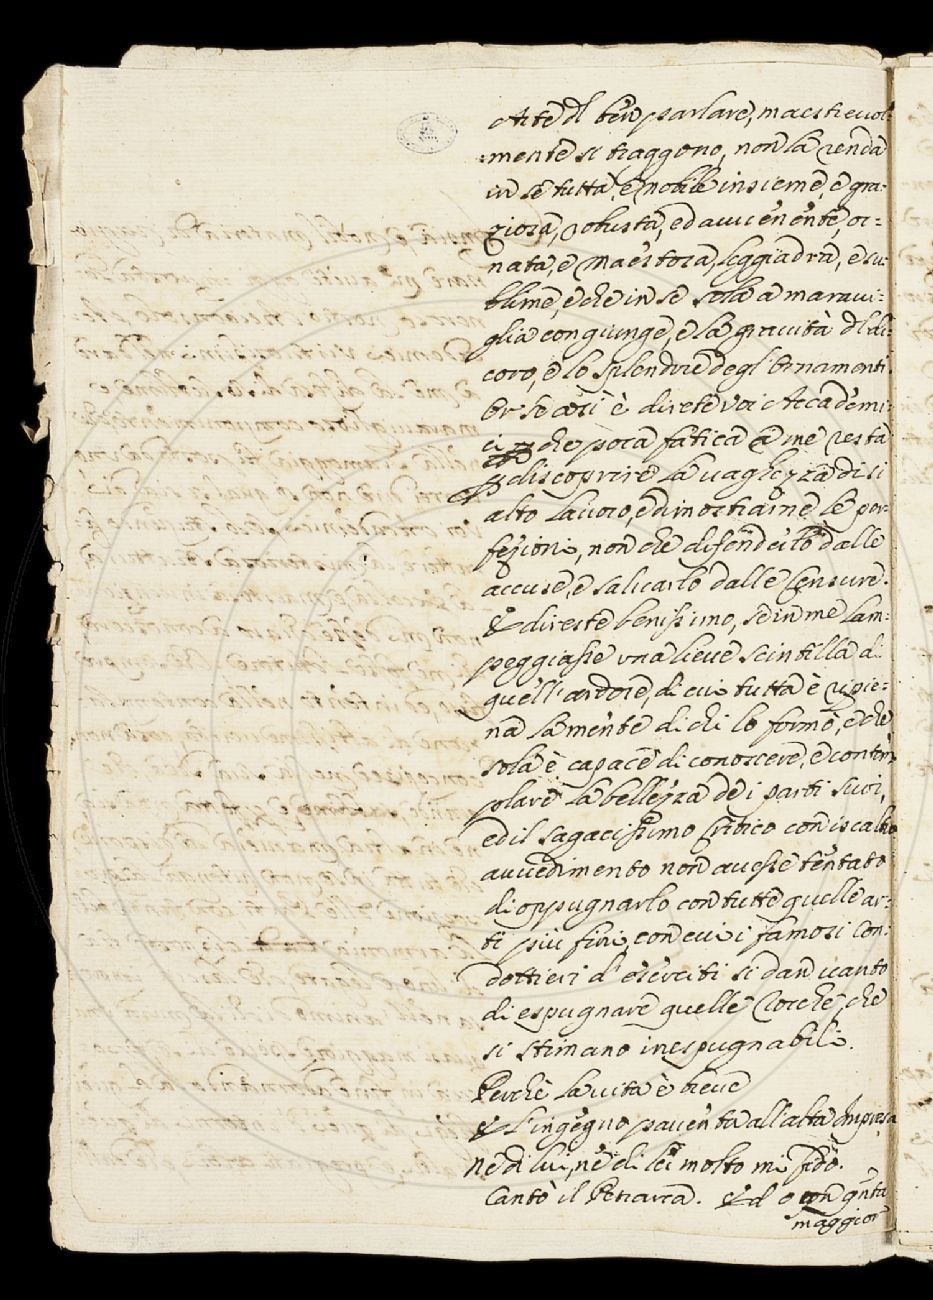 Arte d'l ben parlare, maestrevol-
mente si traggono, non la renda
in se tutta, e nobile insieme, e gra-
ziosa, robusta, ed avvenente, or-
nata, e maestosa, leggiadra, e su-
blime, e che in se sola a maravi-
glia congiunge, e la gravità d'l de-
coro, e lo splendore degl'ornamenti
Or se così è direte voi Accademi-
ci che poca fatica a me resta
p discoprire la vaghezza di si
alto lavoro, e dimostrarne le per-
fezioni, non che difenderlo dalle
accuse, e salvarlo dalle Censure.
E direste benissimo, se in me lam-
peggiasse una lieve scintilla di
quell'ardore, di cui tutta è ripie-
na la mente di chi lo formò, e che
sola è capace di conoscere, e contem
plare la bellezza de i parti suoi,
ed il sagacissimo Critico con iscaltro
avvedimento non avesse tentato
di oppugnarlo con tutte quelle ar-
ti più fini, con cui i famosi Con-
dottieri d'eserciti si dan vanto
di espugnare quelle Rocche, che
si stimano inespugnabili.
Perchè la vita è breve
E l'ingegno paventa all'alta impresa
Ne di lui, nè di lei molto mi fido.
Cantò il Petrarca. Ed o con qnta
maggior